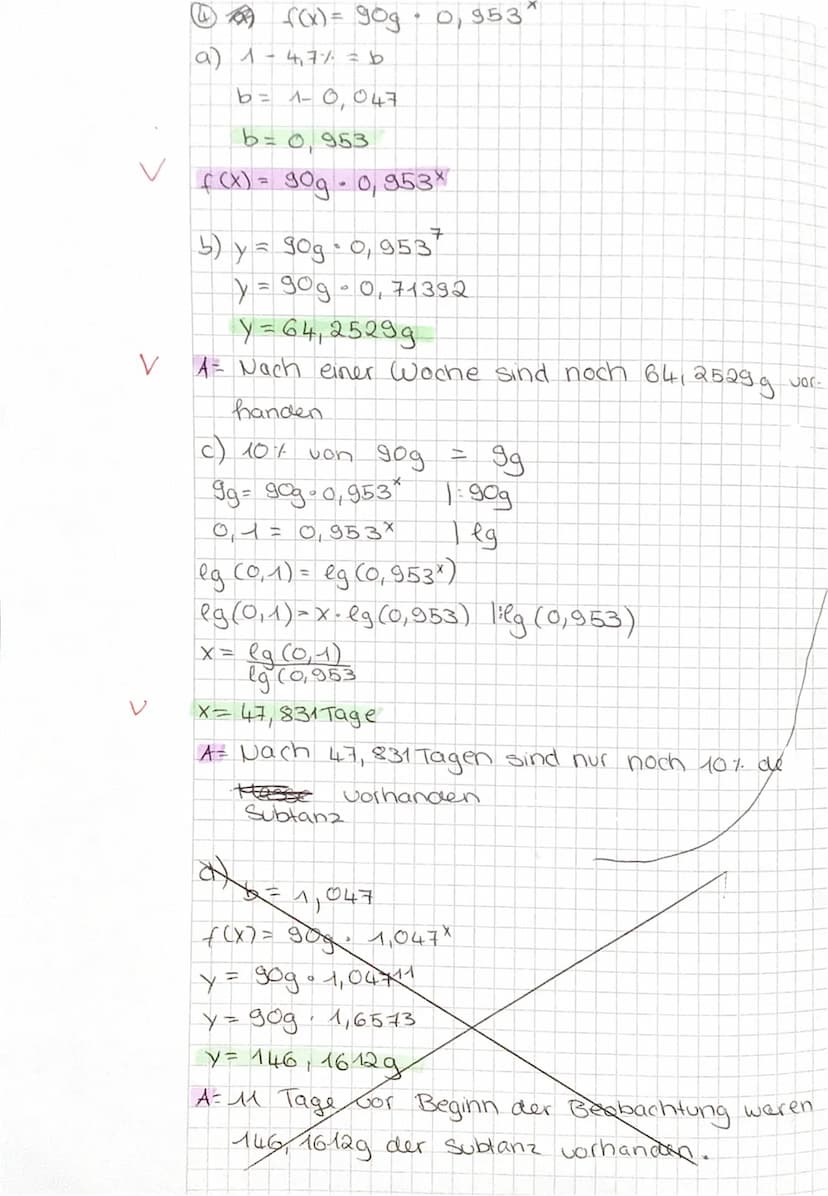 ④ f(x) = 90g · 0,953^x
a) 1 - 4,7% = b
b = 1 - 0,047
b = 0,953
f(x) = 90g · 0,953^x
b) y = 90g · 0,953^7
y = 90g · 0,71392
y = 64,2529g
A= Nach einer Woche sind noch 64,2529g vor-
handen
c) 10% von 90g = 9g
9g = 90g · 0,953^x |:90g
0,1 = 0,953^x | lg
lg (0,1) = lg (0,953^x)
lg (0,1) = x · lg (0,953) |:lg (0,953)
x = lg (0,1)
lg (0,953
x = 47,831 Tage
A= Nach 47,831 Tagen sind nur noch 10% de
Masse vorhanden
Subtanz
d) b = 1,047
f(x) = 90g · 1,047^x
y = 90g · 1,047^11
y = 90g · 1,6573
y = 146,1612g
A= 11 Tage vor Beginn der Beobachtung waren
146,1612g der Subtanz vorhanden.